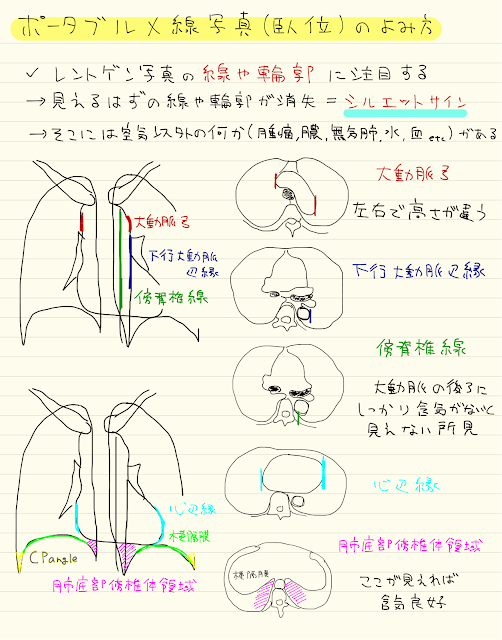 ポータブルX線写真(臥位)のよみ方
✓ レントゲン写真の線や輪郭に注目する
→見えるはずの線や輪郭が消失=シルエットサイン
→そこには空気以外の何か(腫瘤,膿,無気肺,水,血etc)がある
大動脈弓
下行大動脈辺縁
傍脊椎線
大動脈弓
左右で高さが違う
下行大動脈辺縁
傍脊椎線
大動脈の後ろに
しっかり含気がないと
見えない所見
心辺縁
横隔膜
CPangle
肺底部傍椎体領域
心辺縁
肺底部傍椎体領域
横隔膜
ここが見えれば
含気良好